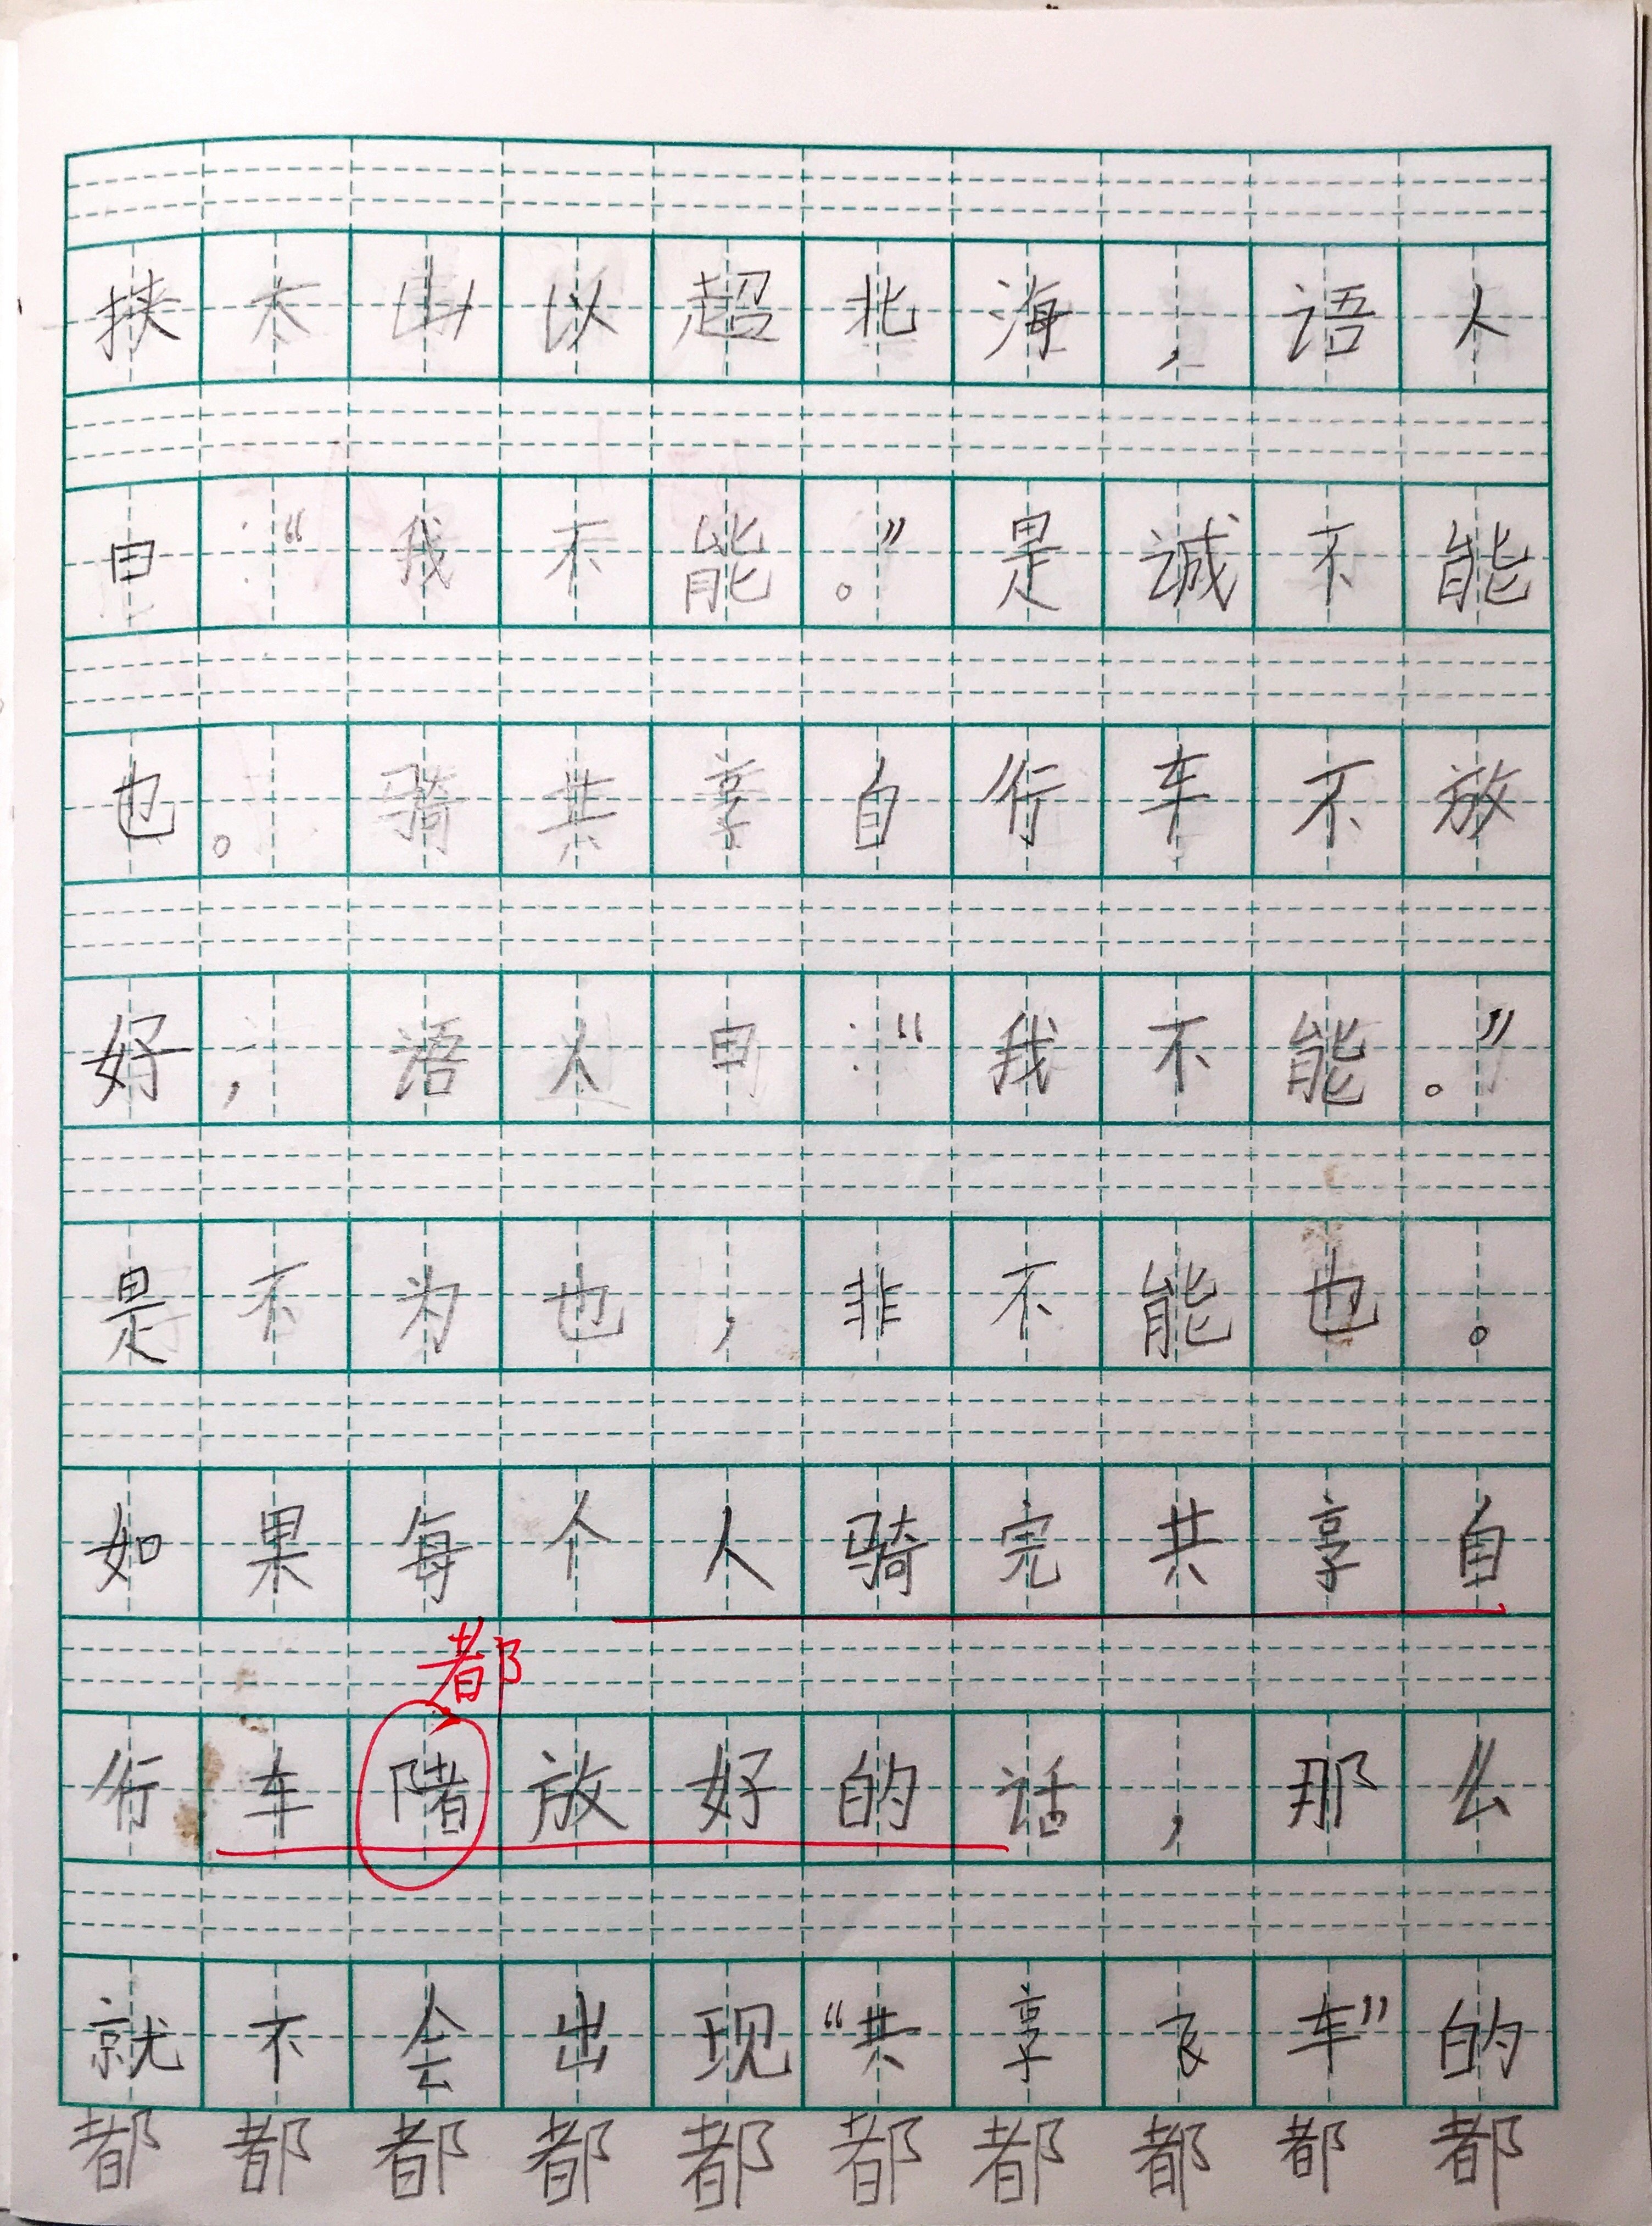 挟太山以超北海，语人
曰：“我不能。”是诚不能
也。骑共享自行车不放
好，语人曰：“我不能。”
是不为也，非不能也。
如果每个人骑完共享自
都
行车陼放好的话，那么
就不会出现“共享飞车”的
都都都都都都都都都都